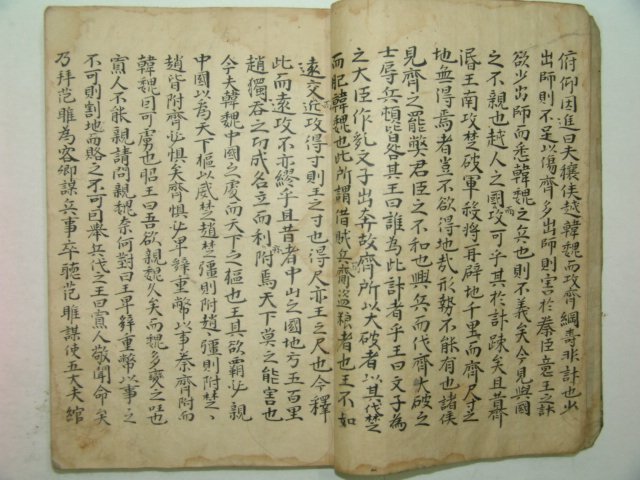 俯仰因進曰夫穰侯越韓魏而攻齊綱壽非計也少
出師則不足以傷齊多出師則害於秦臣意王之計
欲少出師而悉韓魏之兵也則不義矣今見與國
之不親也越人之國而攻可乎其於計疎矣且昔齊
湣王南攻楚破軍殺將再辟地千里而齊尺寸之
地無得焉者豈不欲得地哉形勢不能有也諸侯
見齊之罷獘君臣之不和也興兵而伐齊大破之
士辱兵頓皆咎其王曰誰為此計者乎王曰文子為
之大臣作乱文子出奔故齊所以大破者以其伐楚
而肥韓魏也此所謂借賊兵而齎盜粮者也王不如
遠交近攻得寸則王之寸也得尺亦王之尺也今釋
此而遠攻不亦繆乎且昔者中山之國地方五百里
趙獨吞之功成名立而利附焉天下莫之能害也
今夫韓魏中國之處而天下之樞也王其欲霸必親
中國以為天下樞以威楚趙楚彊則附趙〻彊則附楚〻
趙皆附齊必惧矣齊惧必卑辞重幣以事秦齊附而
韓魏因可虜也昭王曰吾欲親魏久矣而魏多變之国也
寡人不能親請問親魏奈何對曰王卑辞重幣以事之
不可則割地而賂之不可因舉兵伐之王曰寡人敬聞命矣
乃拜范雎為客卿謀兵事卒聽范雎謀使五大夫綰